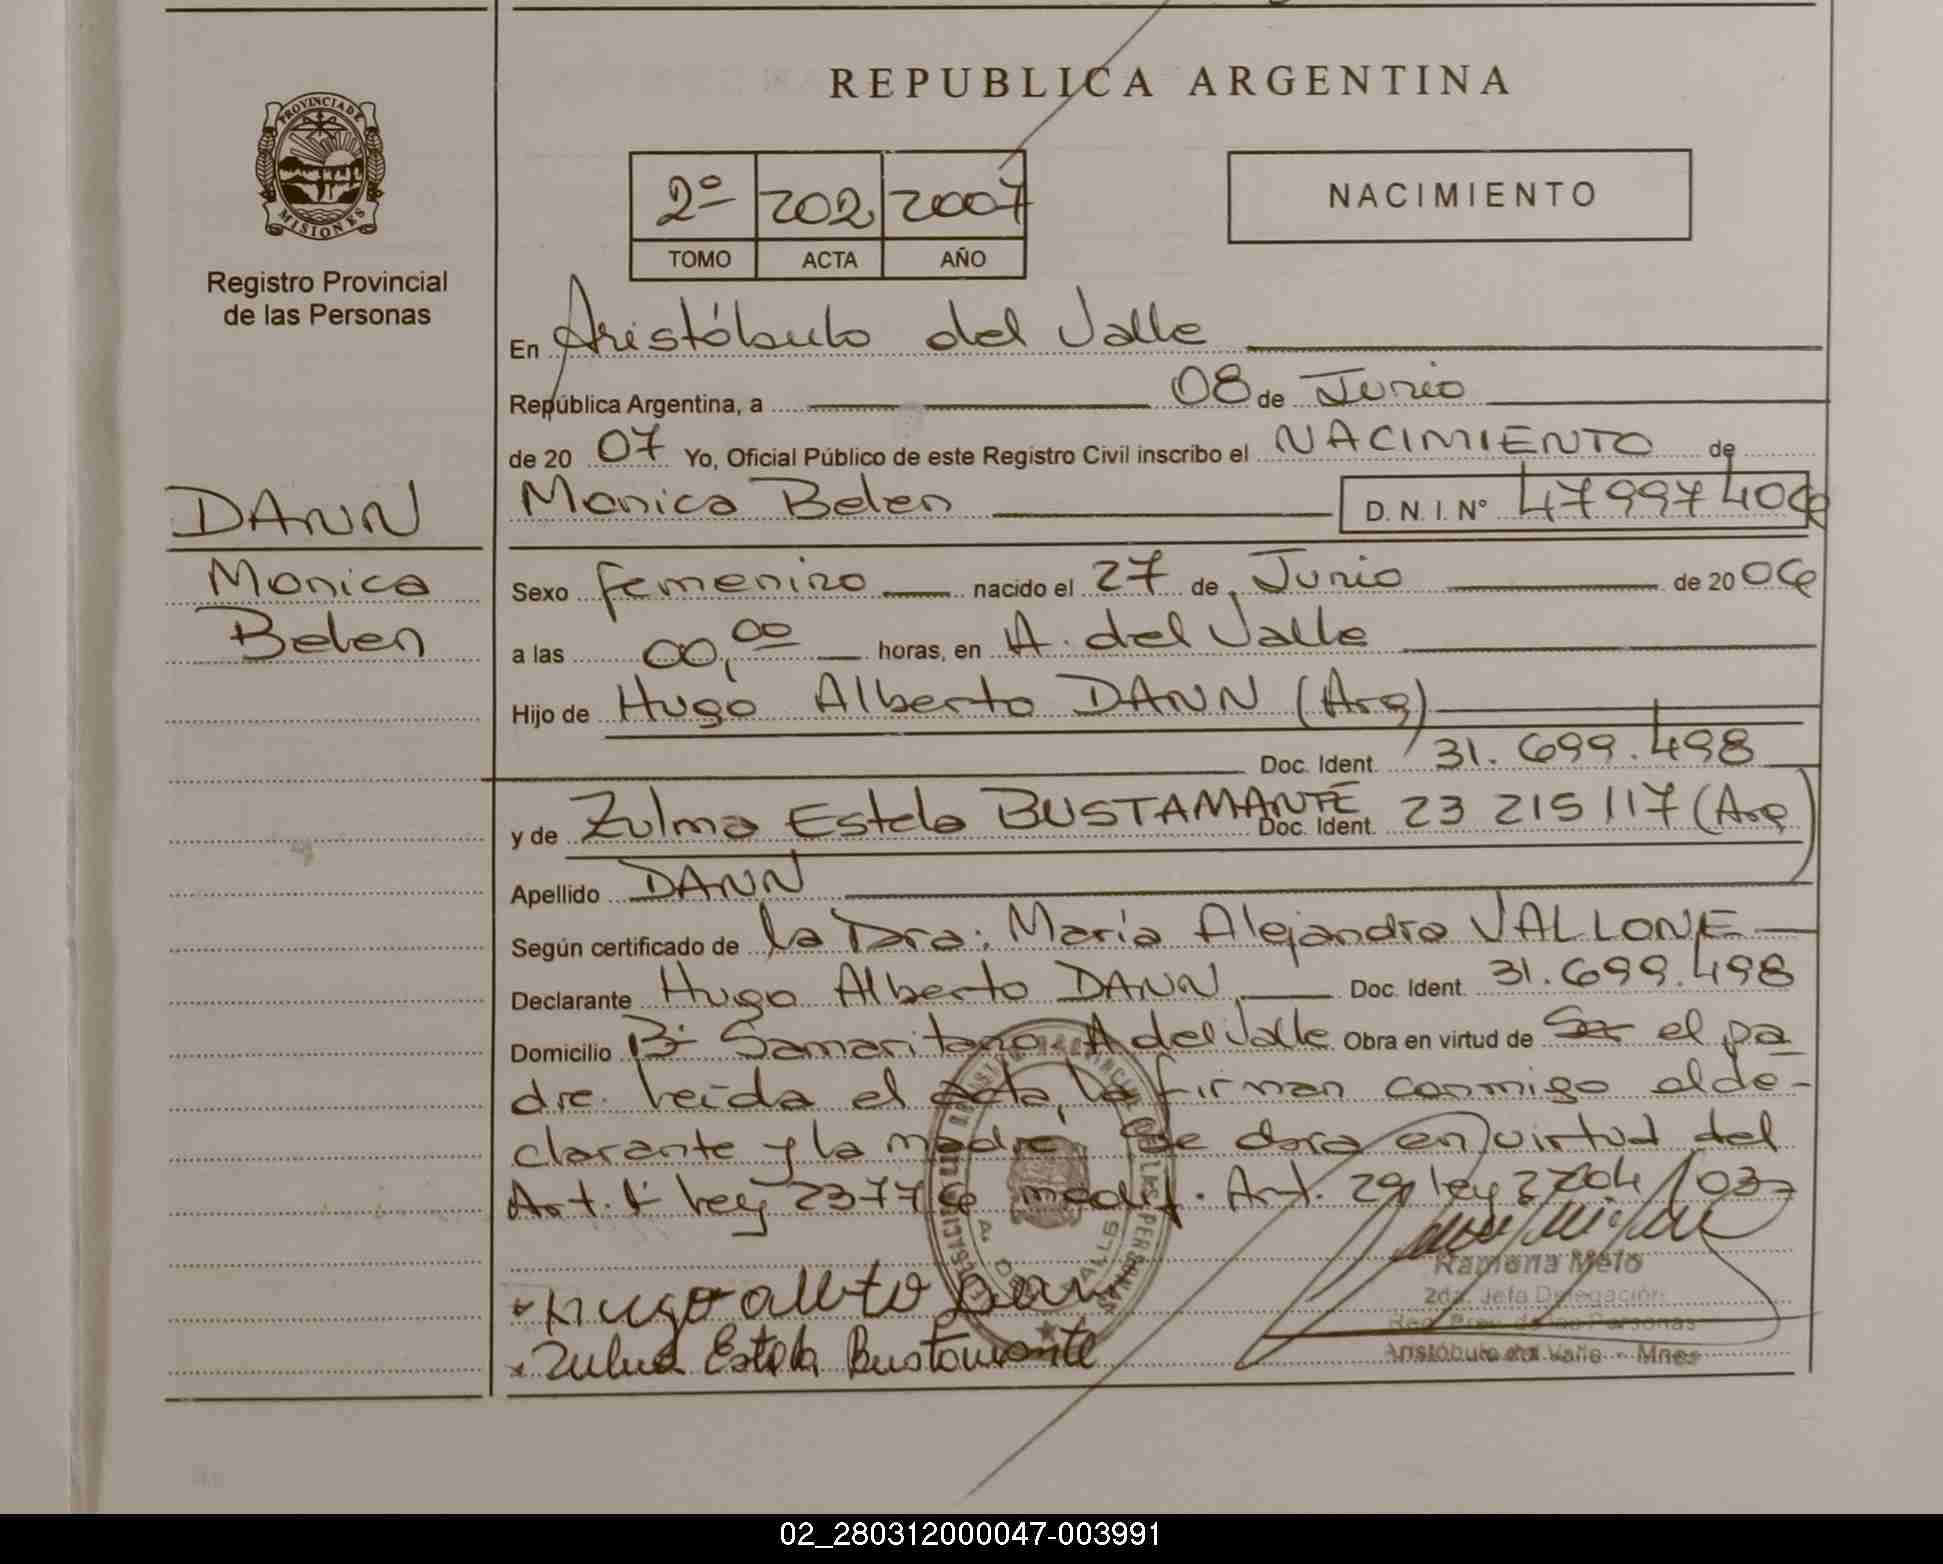 REPUBLICA ARGENTINA
PROVINCIA DE
MISIONES
Registro Provincial
de las Personas
2º 202 2007
TOMO ACTA AÑO
NACIMIENTO
En Aristóbulo del Valle
República Argentina, a 08 de Junio
de 20 07 Yo, Oficial Público de este Registro Civil inscribo el NACIMIENTO de
DANN
Monica
Belen
Monica Belen D. N. I. Nº 47997406
Sexo femenino nacido el 27 de Junio de 20 06
a las 00,00 horas, en A. del Valle
Hijo de Hugo Alberto DANN (Arg)
Doc. Ident. 31.699.498
y de Zulma Estela BUSTAMANTE Doc. Ident. 23 215 117 (Arg)
Apellido DANN
Según certificado de la Dra. María Alejandra VALLONE
Declarante Hugo Alberto DANN Doc. Ident. 31.699.498
Domicilio Bº Samaritano A del Valle Obra en virtud de el pa
dre. Leída el acta, la firman conmigo el de-
clarante y la madre, en virtud del
Art. Ley 23776 modif. Art. 29 ley 2704/03
Hugo alberto Dann
Zulma Estela Bustamante
Ramona Melo
2da. Jefa Delegación
Reg. Prov. de las Personas
Aristóbulo del Valle - Mnes
02_280312000047-003991